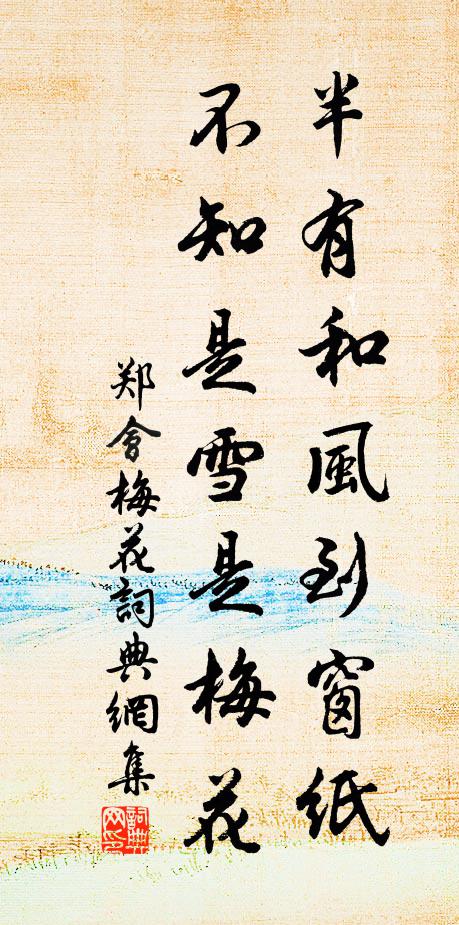 半有和風到窗紙
不知是雪是梅花
郑會梅花詞典網集
詞典网印